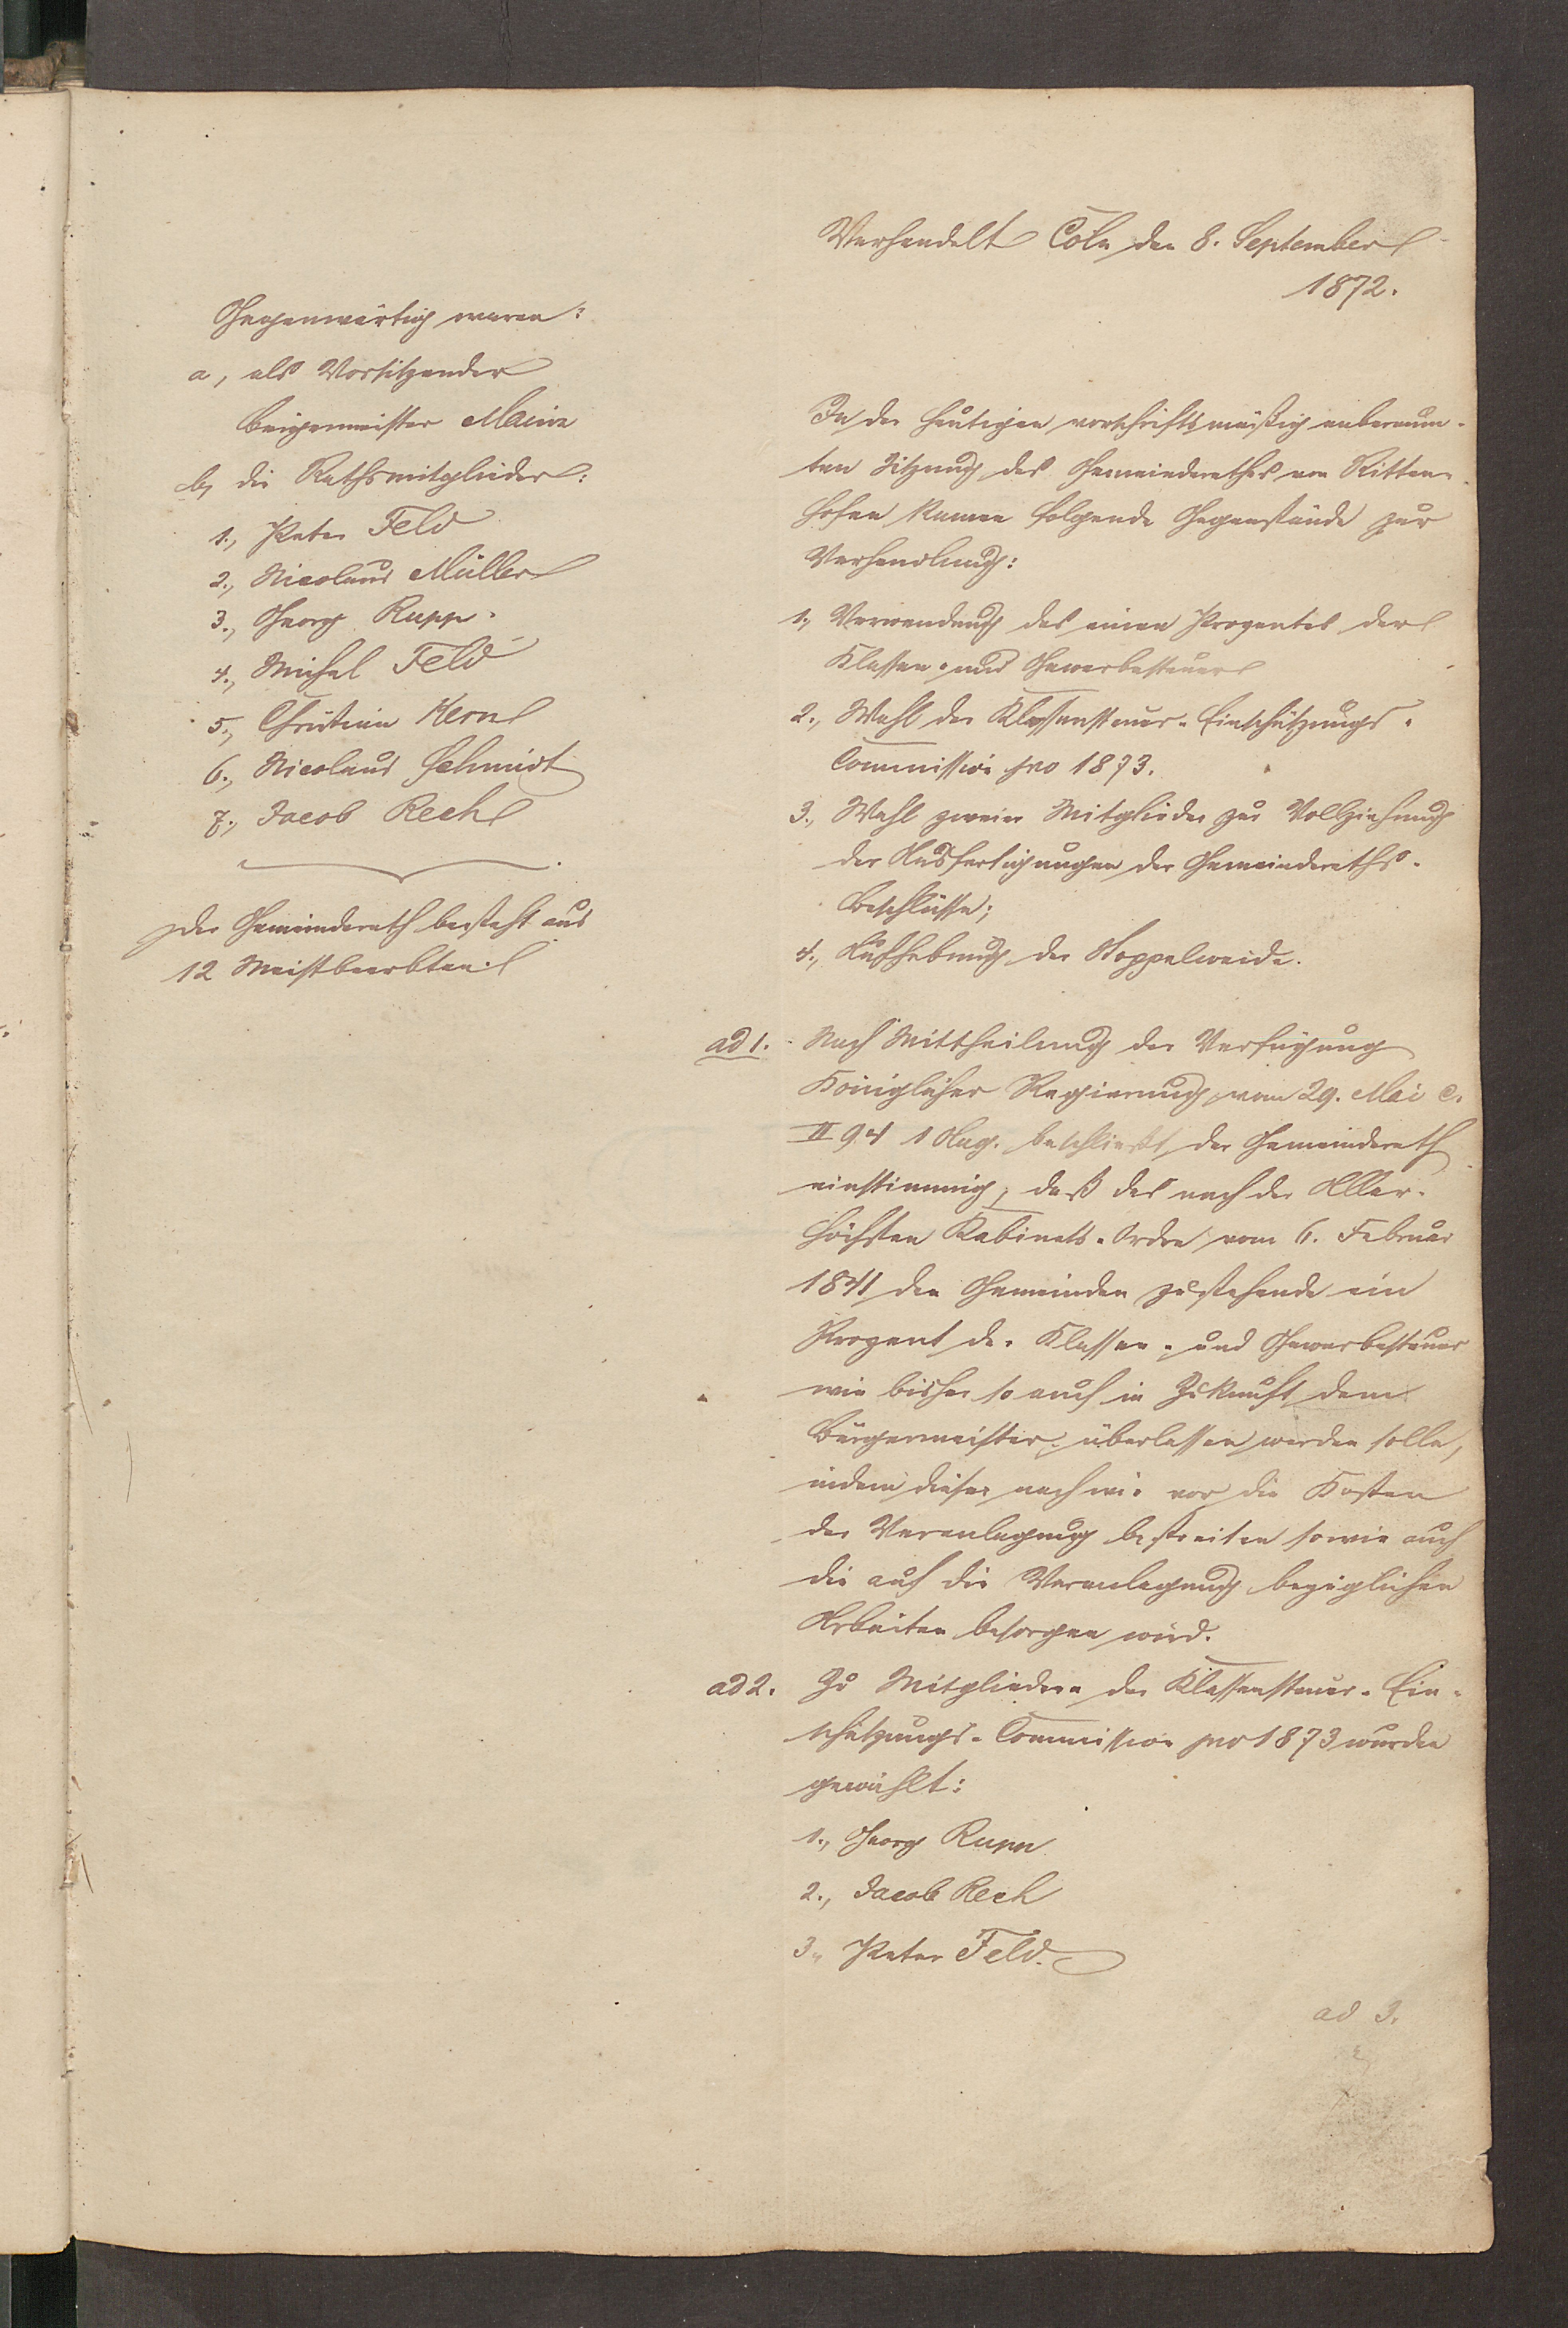 Verhandelt Cöln den 8. September
1872.
Gegenwärtig waren:
a, als Vorsitzender
Bürgermeister Maurer
b, die Rathsmitglieder:
1., Peter Feld
2., Nicolaus Müller
3., Georg Rupp.
4., Michel Feld
5., Christian Kern
6., Nicolaus Schmidt
7., Jacob Rech
Der Gemeinderath besteht aus
12 Meistbeerbten.
In der heutigen vorschriftsmäßig anberaum-
ten Sitzung des Gemeinderathes von Ritten-
hofen kamen folgende Gegenstände zur
Verhandlung:
1., Verwendung des einen Prozentes der
Klassen- und Gewerbesteuer
2., Wahl der Klassensteuer-Einschätzungs-
Commission pro 1873.
3., Wahl zweier Mitglieder zur Vollziehung
der Ausfertigungen der Gemeinderaths-
Beschlüsse;
4., Aufhebung der Stoppelweide.
ad 1. Nach Mittheilung der Verfügung
Königlicher Regierung vom 29. Mai c.
II 94 beschließt der Gemeinderath
einstimmig, daß das nach der Aller-
höchsten Kabinets-Ordre vom 6. Februar
1841 den Gemeinden zustehende ein
Prozent der Klassen- und Gewerbesteuer
wie bisher so auch in Zukunft dem
Bürgermeister überlassen werden solle,
indem dieser nach wie vor die Kosten
der Veranlagung bestreiten sowie auch
die auf die Veranlagung bezüglichen
Arbeiten besorgen wird.
ad 2. Zu Mitgliedern der Klassensteuer-Ein-
schätzungs-Commission pro 1873 wurden
gewählt:
1., Georg Rupp
2., Jacob Rech
3., Peter Feld.
ad 3.